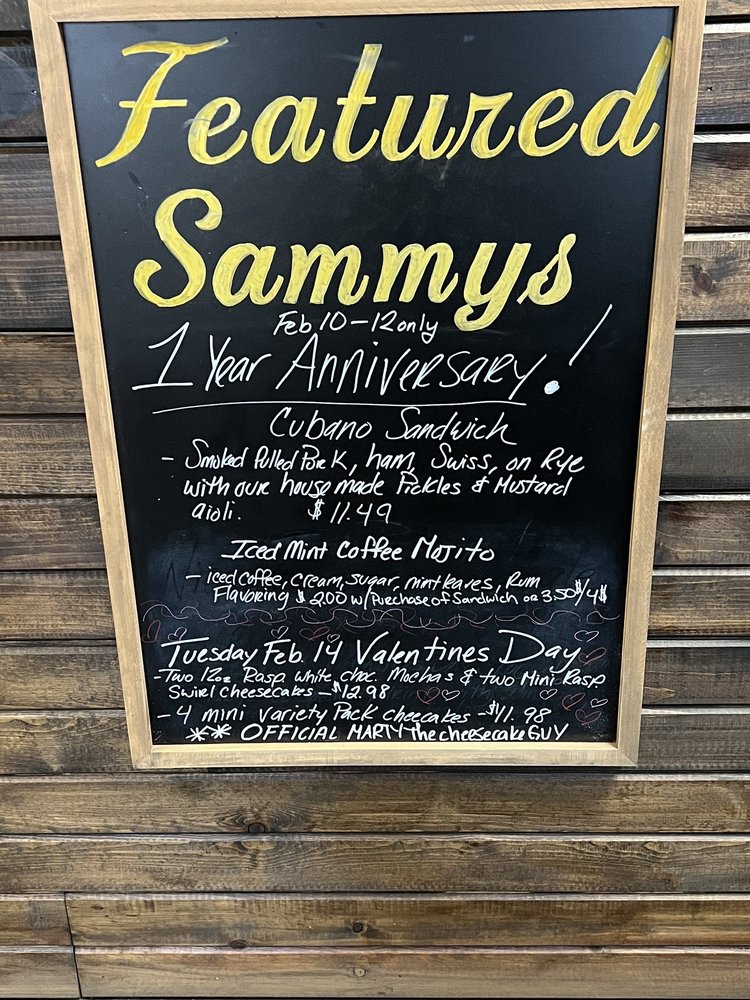 Featured
Sammys
Feb 10-12 only
1 Year Anniversary!
Cubano Sandwich
- Smoked Pulled Pork, ham, Swiss, on Rye
with our house made Pickles & Mustard
aioli. $11.49
Iced Mint Coffee Mojito
- iced coffee, cream, sugar, mint leaves, Rum
Flavoring $2.00 w/ Purchase of Sandwich or 3.50$/4$
Tuesday Feb. 14 Valentines Day
- Two 12oz Rasp white choc. Mochas & two Mini Rasp
Swirl cheesecakes - $12.98
- 4 mini variety Pack cheecakes - $11.98
** OFFICIAL MARTY the cheesecake GUY